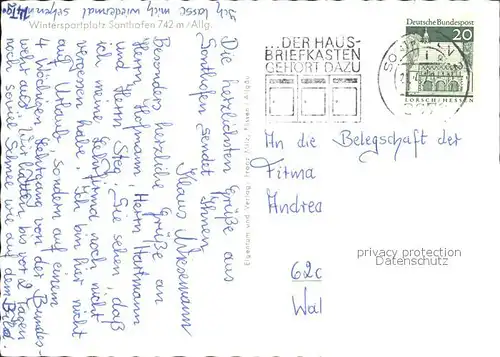 Ich lasse mich wiedermal sehen
Wintersportplatz Sonthofen 742 m / Allg.
Die herzlichsten Grüße aus
Sonthofen sendet Ihnen
Klaus
Besonders herzliche Grüße an
Herrn Hofmann, Herrn Hartmann
und Herrn Steg. Sie sehen, daß
ich meine Lehrfirma noch nicht
vergessen habe. Ich bin hier nicht
auf Urlaub, sondern auf einem
4 wöchigen Lehrgang von der Bundes-
wehr aus. Wir hatten bis vor 2 Tagen
noch soviel Schnee wie auf dem Bild.
...DER HAUS-
BRIEFKASTEN
GEHÖRT DAZU
Deutsche Bundespost
20
LORSCH/HESSEN
An die Belegschaft der
Firma
Andrea
62c
Wal
privacy protection
Datenschutz